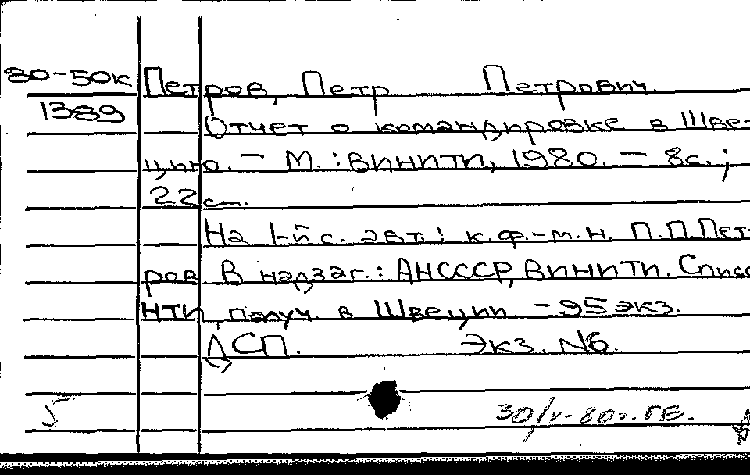 80-50к Петров, Петр Петрович
1389 Отчет о командировке в Шве-
цию. – М.: ВИНИТИ, 1980. – 8с.;
22см.
На 1-й с. авт.: к.ф.-м.н. П.П.Пет-
ров. В надзаг.: АНСССР, ВИНИТИ. Списо
НТИ, получ. в Швеции – 95 экз.
ДСП. Экз. №6.
5 30/V-80г. ГЕ.